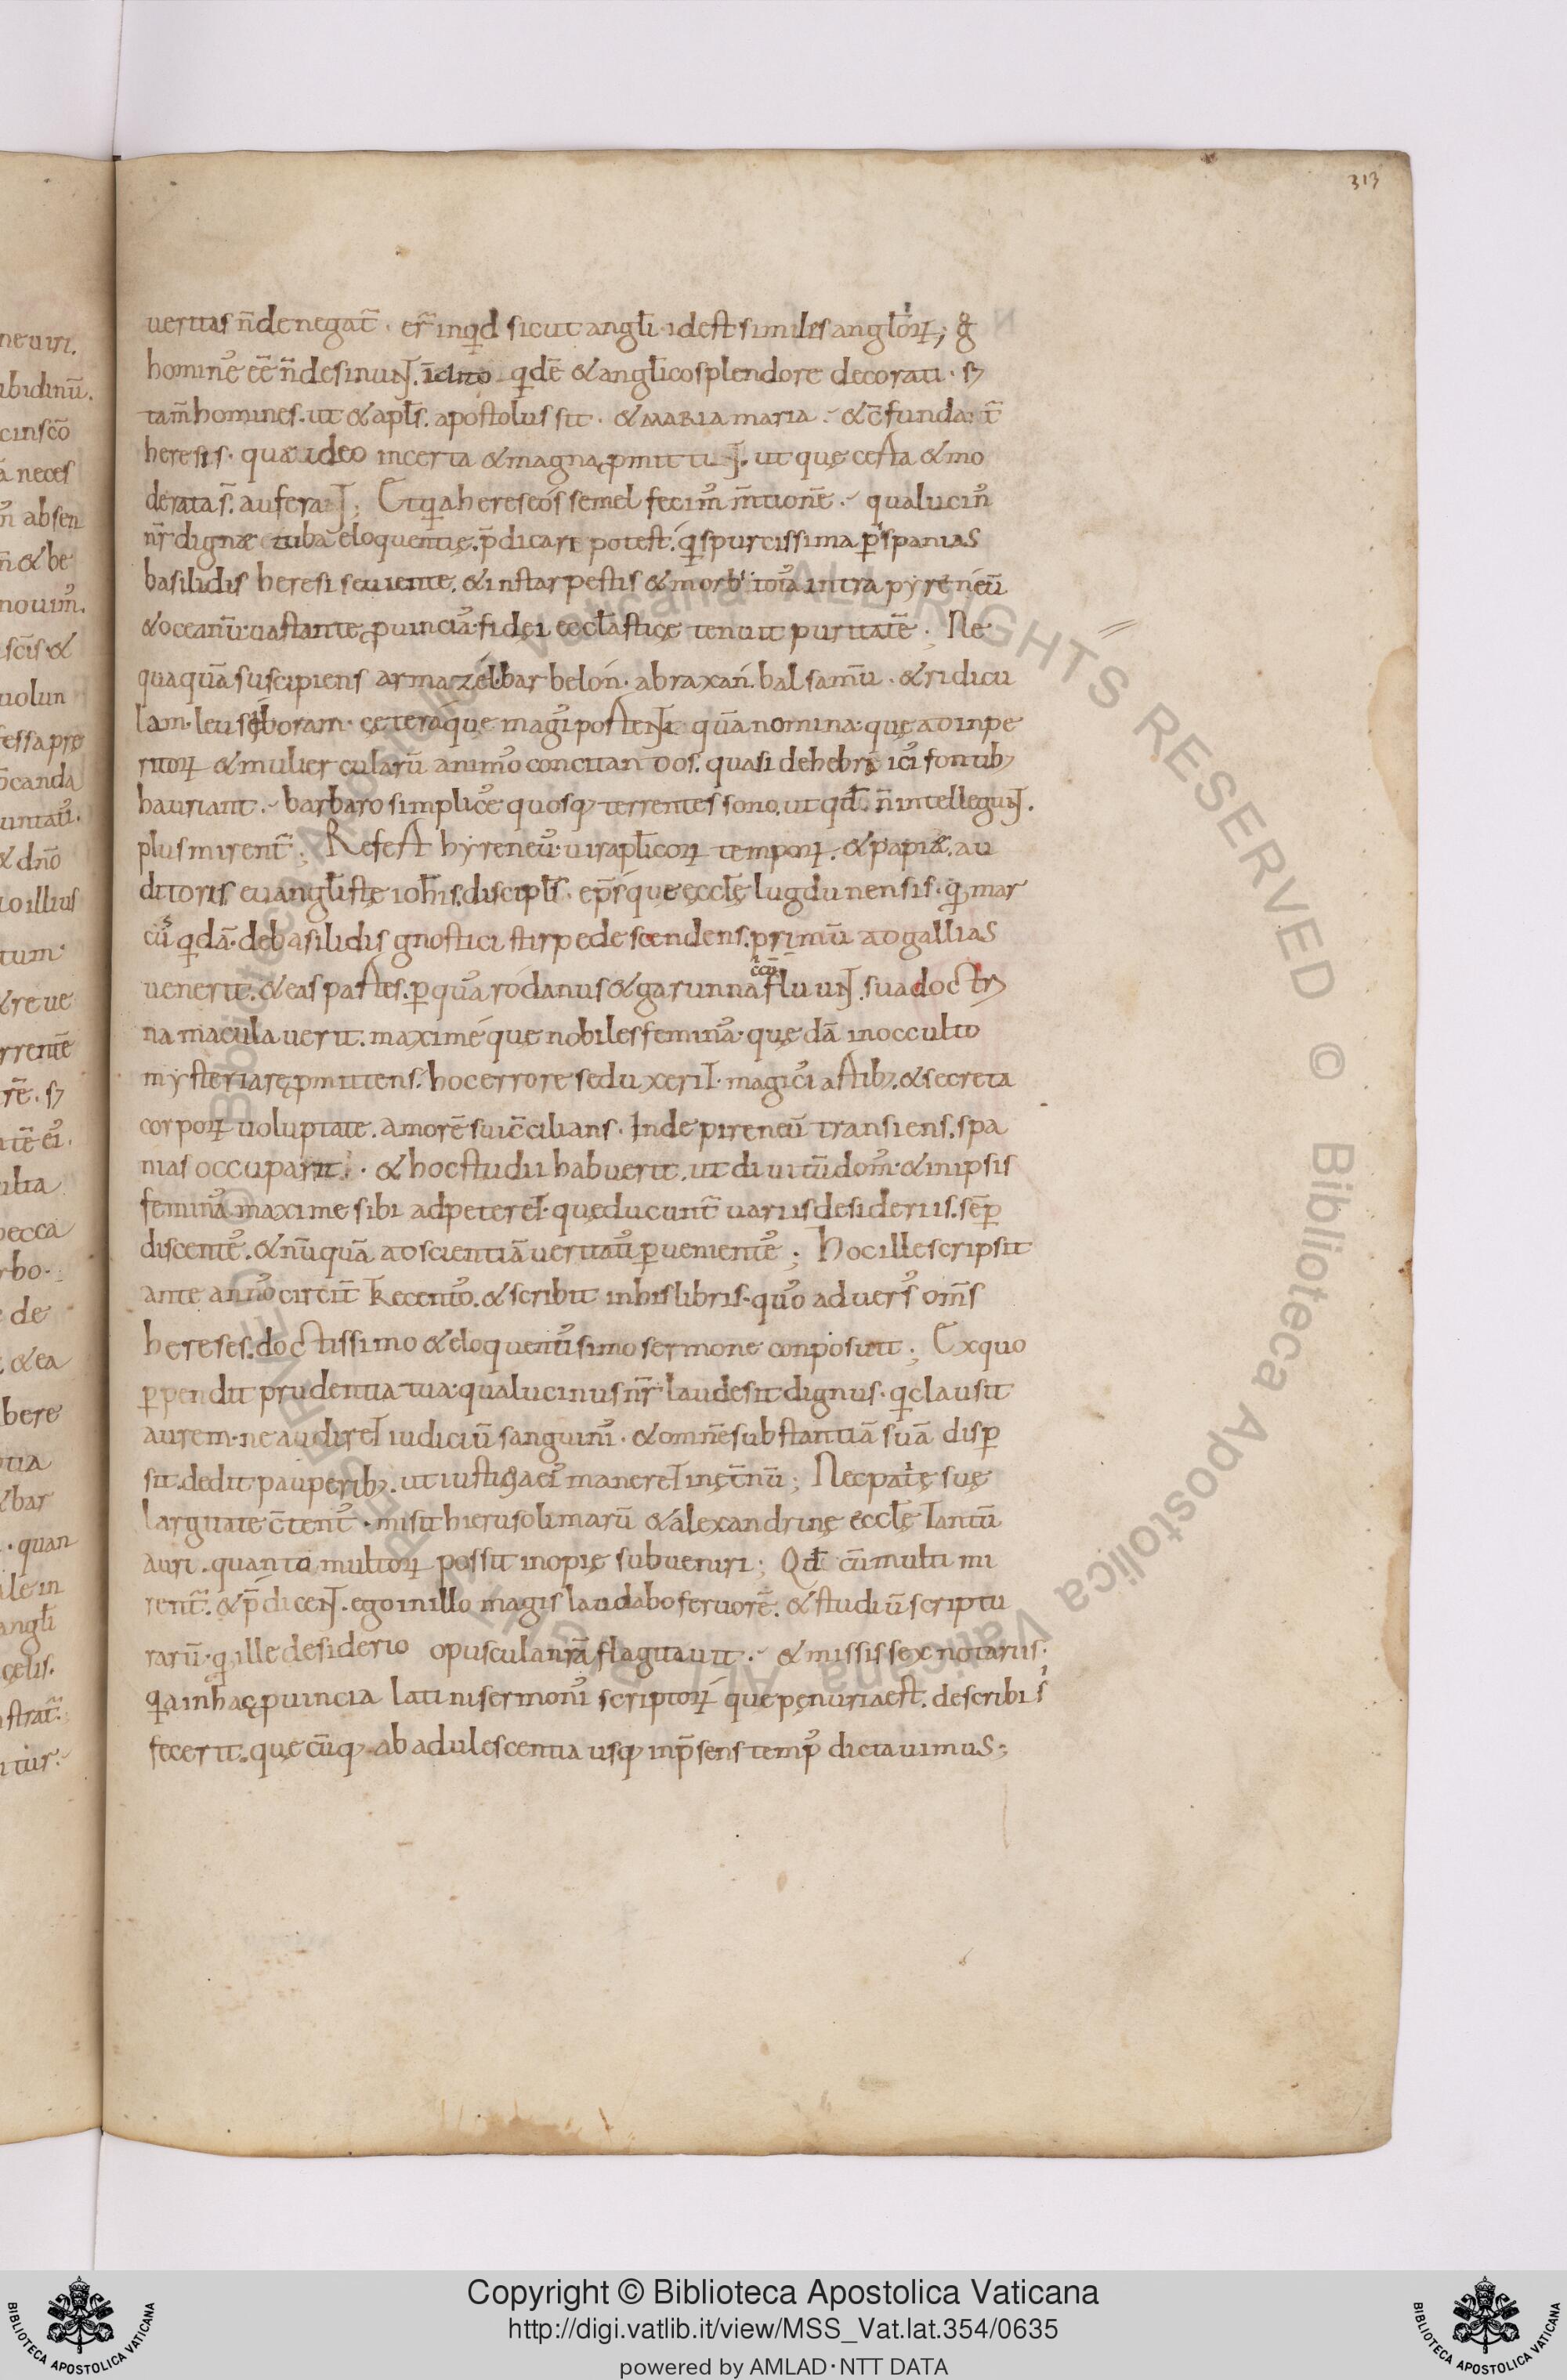 313
ueritas n̄ denegat̄. er̄ inqd sicut angl̄i. id est similes anglor̄; g
homine᷒ eē n̄ desinunt. inclito qdē & anglico splendore decorati. s;
tam̄ homines. ut & apl̄s. apostolus sit. & MARIA maria. & c̄fundat̄
heresis. quæ ideo incerta & magna ꝓmittunt. ut quę certa & mo
derata s̄. auferant; Et qia hereseos semel fecim᷒ m̄tionē. qua lucin᷒
nr̄ dignæ tuba eloquentię. p̄dicari potest. qi spurcissima p spanias
basilidis heresi seuiente. & instar pestis & morbi tota intra pyreneū
& oceanū uastante ꝓuincia. fidei eccl̄asticę tenuit puritatē. Ne
quaquā suscipiens armazel barbelon. abraxan. balsamū. & ridicu
lam leusiboram. ceteraque magi᷒ portenta quā nomina. quę ad inpe
ritoꝝ & muliercularū animo᷒ concitandos. quasi de hebręici᷒ fontib;
hauriunt. barbaro simplice᷒ quosq; terrentes sono. ut qd̄ n̄ intellegunt.
plus mirent̄; Refert hyreneu᷒. uir apl̄icoꝝ tempoꝝ. & papiæ. au
ditoris euangl̄istę ioh̄is. discipl̄s. ep̄s que ęccl̄ę lugdunensis. qi mar
cu᷒ qdā. de basilidis gnostici stirpe descendens. primū ad gallias
uenerit. & eas partes. p qua᷒ rodanus & garunna fluunt. sua doctri
na maculauerit. maxime que nobiles femina᷒. quędā in occulto
mysteria rę ꝓmittens. hoc errore seduxerit. magici᷒ artib;. & secreta
corpoꝝ uoluptate. amorē sui c̄cilians. Inde pireneū transiens. spa
nias occuparit. & hoc studii habuerit. ut diuitū domo᷒. & in ipsis
femina᷒ maxime sibi adpeteret. quę ducunt̄ uariis desideriis. sēp
discente᷒. & nūquā ad scientiā ueritati᷒ puenient᷒e; Hoc ille scripsit
ante anno᷒ circit̄ trecento᷒. & scribit in his libris. quo᷒ aduers᷒ om̄s
hereses. doctissimo & eloquenti᷒simo sermone conposuit; Ex quo
ppendit prudentia tua. qua lucinus nr̄ laude sit dignus. qi clausit
aurem. ne audiret iudiciū sanguini᷒. & omnē substantiā suā disp
sit. dedit pauperib;. ut iustitia ei᷒ maneret in ęt̄nū; Nec patrię suę
largitate c̄tent᷒. misit hierusolimarū & alexandrinę ęccl̄ę tantū
auri. quanto multoꝝ possit inopię subueniri; Qd̄ cū multi mi
rent̄. & p̄dicent. ego in illo magis laudabo feruorē. & studiū scriptu
rarū. qi ille desiderio opuscula nr̄a flagitauit. & missis sex notariis.
qia in hac ꝓuincia latini sermoni᷒ scriptoꝝ que pęnuria est. describi s
fecerit. quęcūq; ab adulescentia usq; in p̄sens temp᷒ dictauimus;
Copyright © Biblioteca Apostolica Vaticana
http://digi.vatlib.it/view/MSS_Vat.lat.354/0635
powered by AMLAD·NTT DATA
BIBLIOTECA APOSTOLICA VATICANA
BIBLIOTECA APOSTOLICA VATICANA